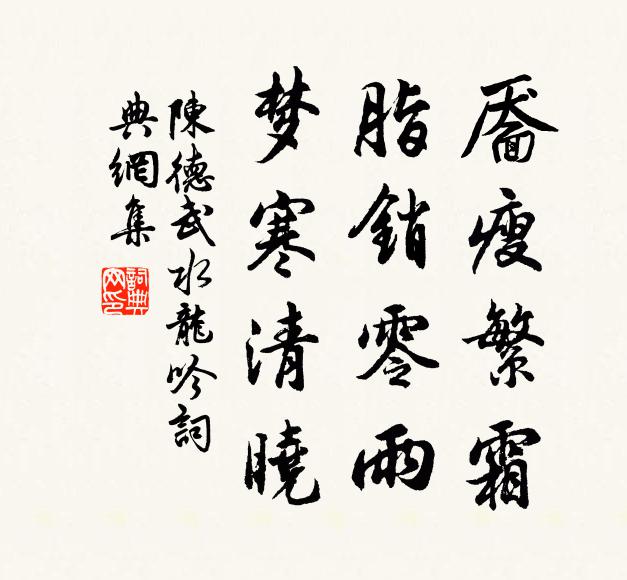 靥瘦繁霜
脂銷零雨
梦寒清曉
陳德武水龍吟詞
典網集
詞典網印